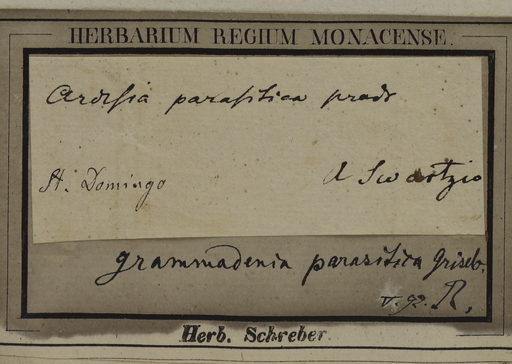 HERBARIUM REGIUM MONACENSE.
Ardisia parasitica
St. Domingo
A Swartzio
grammadenia parasitica Griseb.
R,
Herb. Schreber.